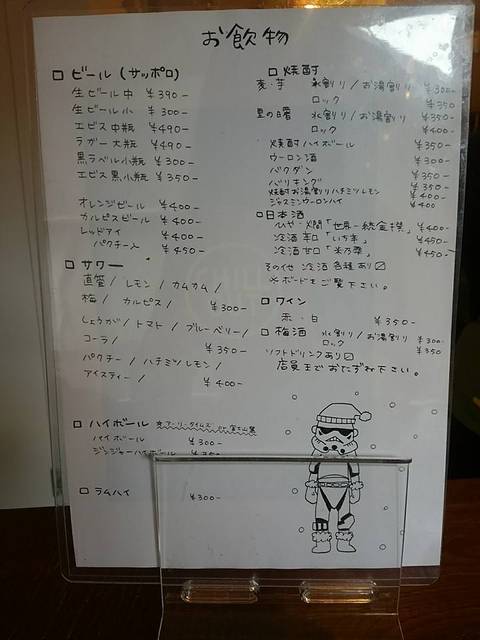 お飲物
□ ビール (サッポロ)
生ビール中 ¥390-
生ビール小 ¥300-
エビス中瓶 ¥490-
ラガー大瓶 ¥490-
黒ラベル小瓶 ¥300-
エビス黒小瓶 ¥350-
オレンジビール ¥400-
カルピスビール ¥400-
レッドアイ ¥400-
パクチー入 ¥450-
□ サワー
直営/ レモン/ カムカム/
梅/ カルピス/ ¥300-
しょうが/ トマト/ ブルーベリー/
コーラ/ ¥350-
パクチー/ ハチミツレモン/
アイスティー/ ¥400-
□ ハイボール
ハイボール ¥300-
ジンジャーハイボール
□ ラムハイ ¥300-
□ 焼酎
麦・芋 水割り/お湯割り ¥300-
ロック ¥350
里の曙 水割り/お湯割り ¥350-
ロック ¥400-
焼酎ハイボール ¥350-
ウーロン酒 ¥300-
バクダン ¥350-
バリキング ¥350-
焼酎お湯割りハチミツレモン ¥400
ジャスミンウーロンハイ ¥400
□ 日本酒
ひや・燗「世界一統金撰」 ¥400-
冷酒辛口「いち辛」 ¥450-
冷酒甘口 ¥450-
その他 冷酒各種あり☑
※ボードをご覧下さい。
□ ワイン
赤・白 ¥350-
□ 梅酒 水割り/お湯割り ¥300-
ロック ¥350
ソフトドリンクあり☑
店員までおたずね下さい。